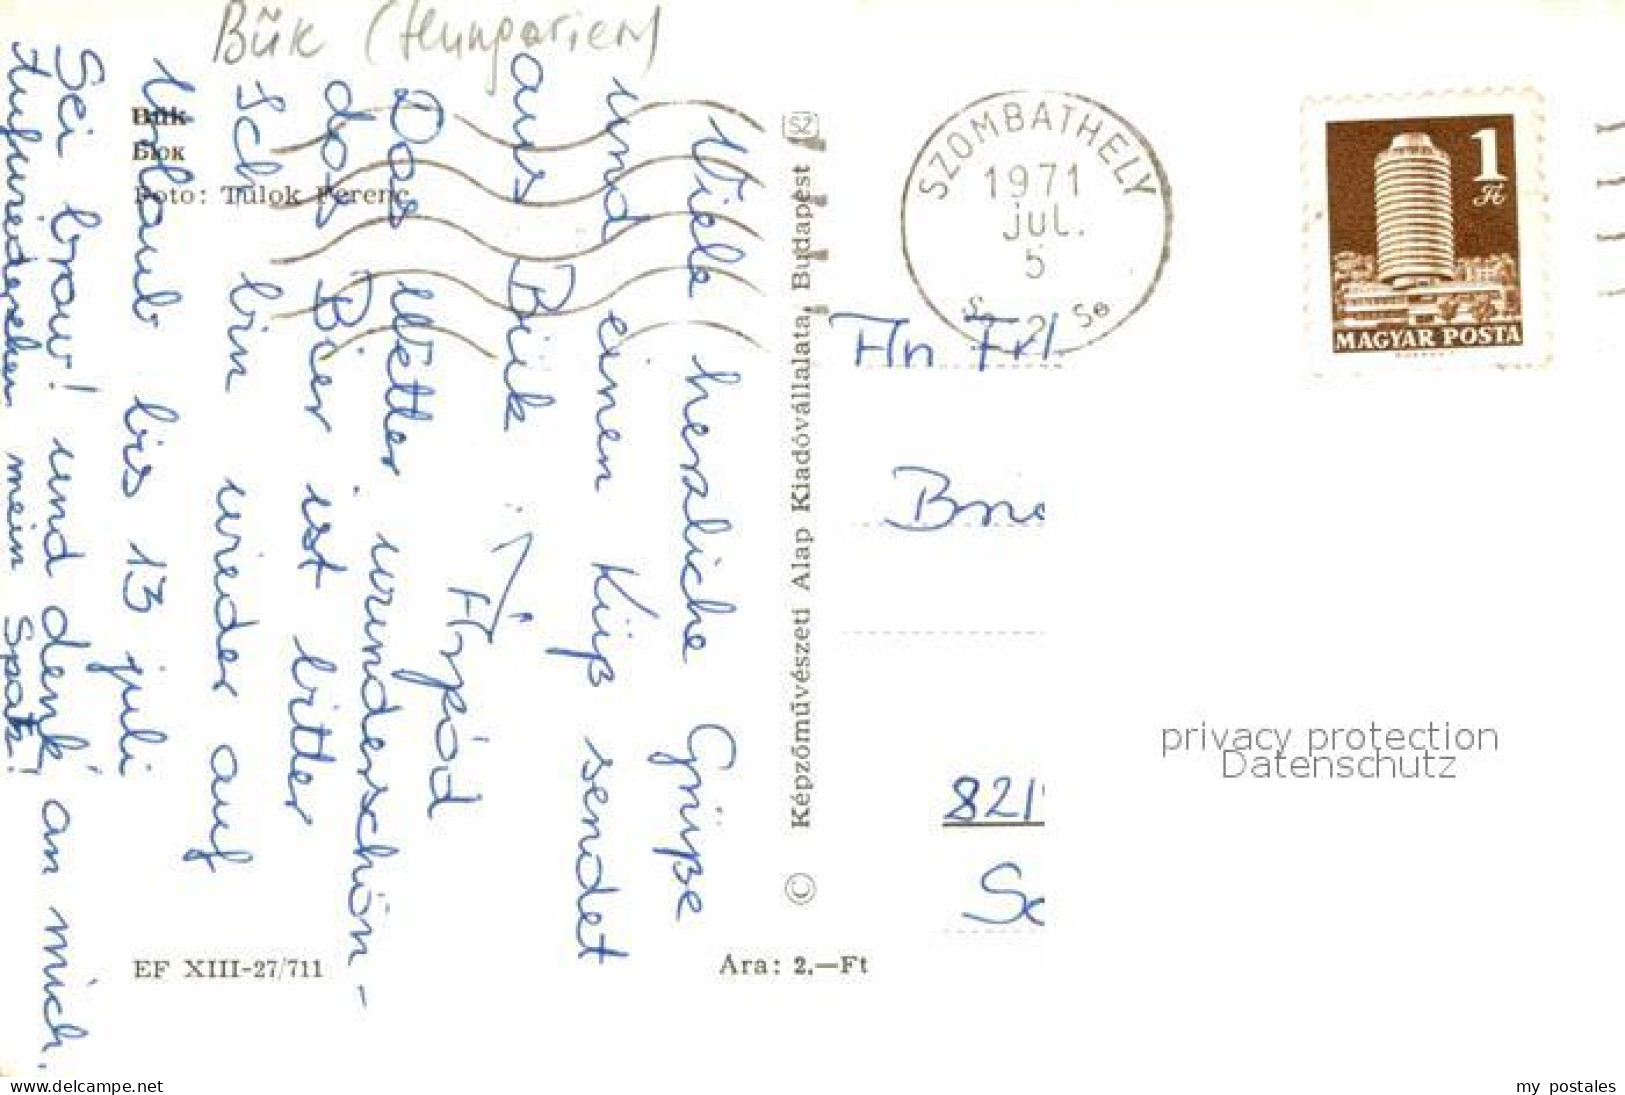 Bük (Hungarien)
Bük
Бюк
Foto: Tulok Ferenc
Viele herzliche Grüße
und einen Küß sendet
aus Bük
Árpád
Das Wetter wunderschön -
das Bier ist bitter
Ich bin wieder auf
Urlaub bis 13 juli
Sei brav! und denk' an mich.
Aufwiedersehen mein Spatz!
EF XIII-27/711
Ara: 2.—Ft
© Képzőművészeti Alap Kiadóvállalata, Budapest
SZ
SZOMBATHELY
1971
JUL.
5
1 Ft
MAGYAR POSTA
An Frl.
821
privacy protection
Datenschutz
www.delcampe.net
my postales